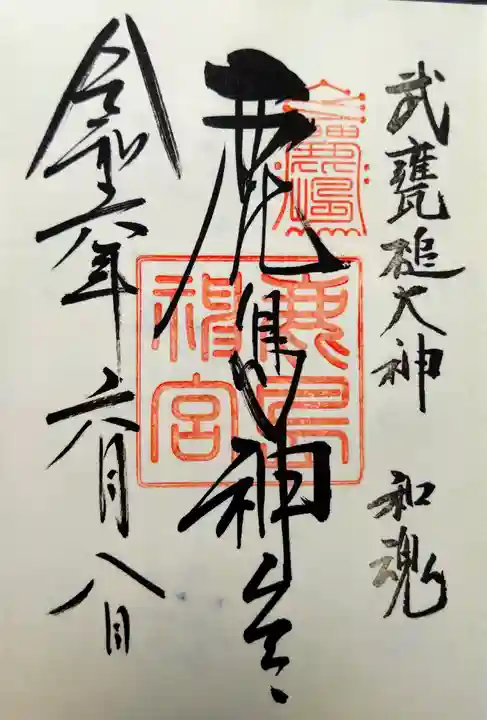 武甕槌大神 和魂
鹿島神宮
鹿島
神宮
令和六年六月八日